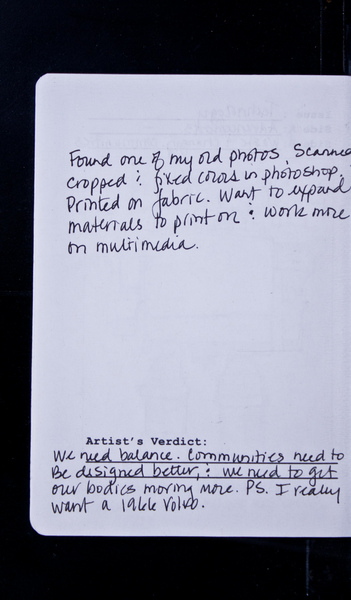 Found one of my old photos, Scanned
cropped & fixed colors in photoshop.
Printed on fabric. Want to expand
materials to print on & work more
on multimedia.
Artist's Verdict:
We need balance. Communities need to
Be designed better, & we need to get
our bodies moving more. PS. I really
want a 1966 Volvo.